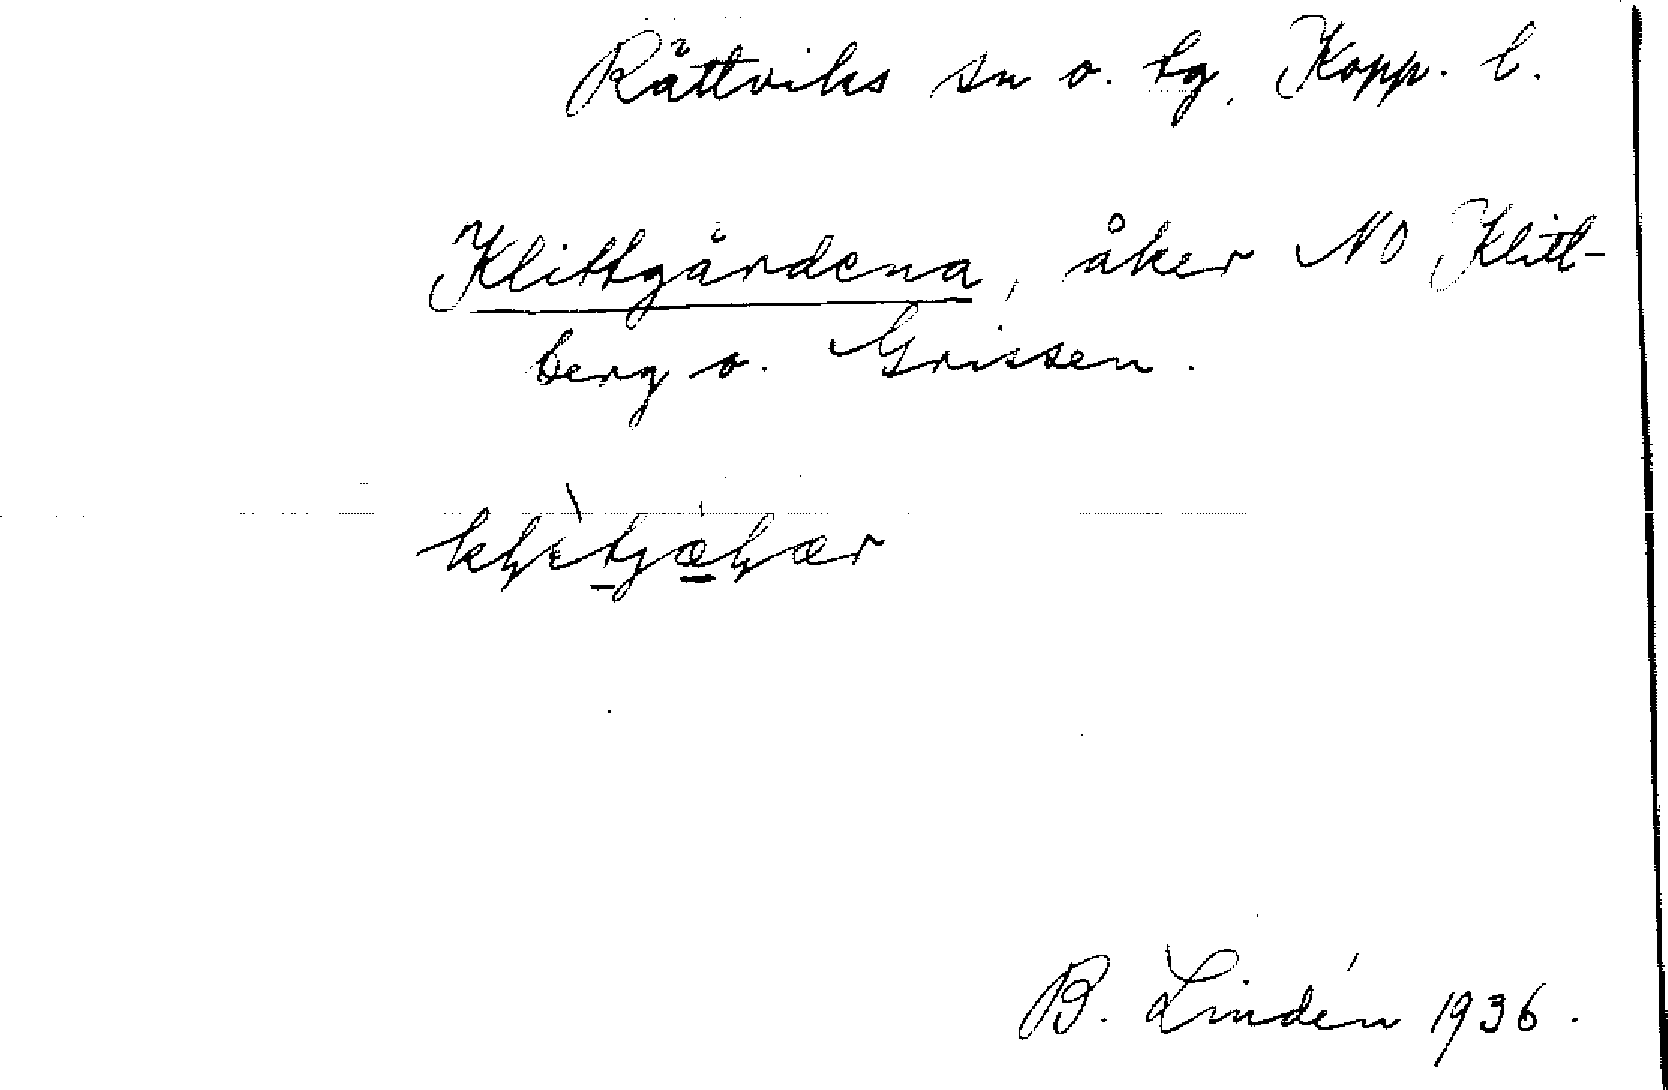 Rättviks sn o. tg. Kopp. l.
Klittgårdena, åker NO Klitt-
berg o. Grissen.
B. Lindén 1936.